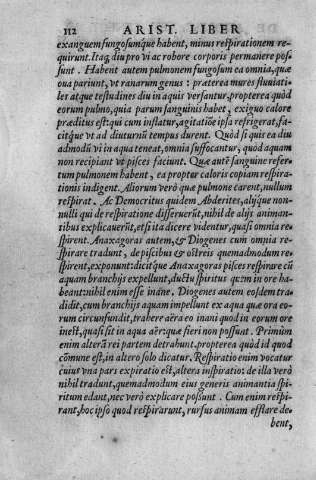 112 ARIST. LIBER
exanguem fungosumq́ue habent, minus respirationem re-
quirunt. Itaq; diu pro vi ac robore corporis permanere pos-
sunt. Habent autem pulmonem fungosum ea omnia, quæ
oua pariunt, vt ranarum genus: præterea mures fluuiati-
les atque testudines diu in aquis versantur, propterea quòd
eorum pulmo, quia parum sanguinis habet, exiguo calore
præditus est: qui cum inflatur, agitatiōe ipsa refrigerat, fa-
citq́ue vt ad diuturnū tempus durent. Quòd si quis ea diu
admodū vi in aqua teneat, omnia suffocantur, quòd aquam
non recipiant vt pisces faciunt. Quæ autē sanguine refer-
tum pulmonem habent, ea propter caloris copiam respira-
tionis indigent. Aliorum verò quæ pulmone carent, nullum
respirat. Ac Democritus quidem Abderites, alijq́ue non-
nulli qui de respiratione disserueruit, nihil de alijs animan-
tibus explicauerūt, etsi ita dicere videntur, quasi omnia re-
spirent. Anaxagoras autem, & Diogenes cum omnia re-
spirare tradunt, de piscibus & ostreis quemadmodum re-
spirent, exponunt: dicitq́ue Anaxagoras pisces respirare cū
aquam branchijs expellunt, ductu spiritus quem in ore ha-
beant: nihil enim esse inane. Diogenes autem eosdem tra-
didit, cum branchijs aquam impellunt ex aqua quæ ora eo-
rum circunfundit, trahere aëra eo inani quod in eorum ore
inest, quasi sit in aqua aër: quæ fieri non possunt. Primùm
enim alterā rei partem detrahunt. propterea quòd id quod
cōmune est, in altero solo dicatur. Respiratio enim vocatur
cuius vna pars expiratio est, altera inspiratio: de illa verò
nihil tradunt, quemadmodum eius generis animantia spi-
ritum edant, nec verò explicare possunt. Cum enim respi-
rant, hoc ipso quod respirarunt, rursus animam efflare de-
bent,